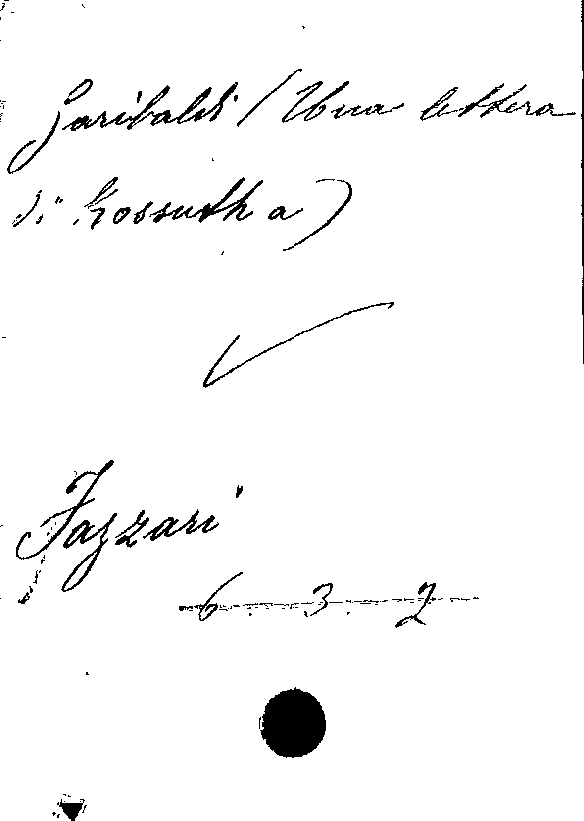 Garibaldi (Una lettera
di Kossuth a)
Fazzari
6. 3. 2